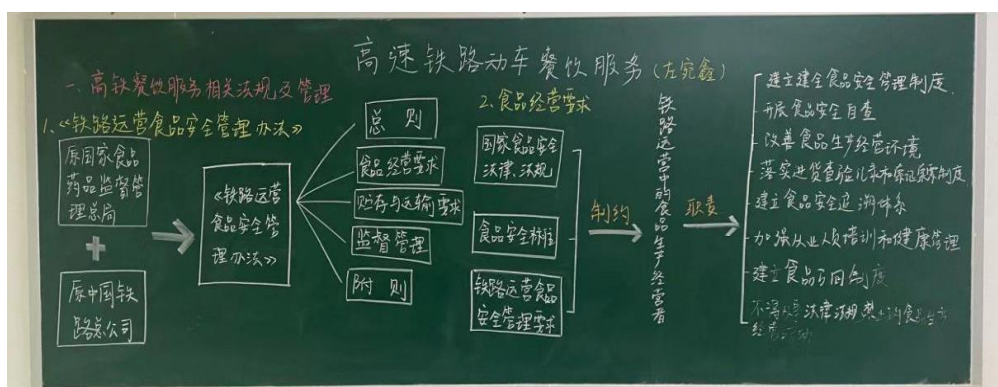 高速铁路动车餐饮服务(左宛鑫)
一、高铁餐饮服务相关法规及管理
1.《铁路运营食品安全管理办法》
原国家食品
药品监督管
理总局
+
原中国铁
路总公司
《铁路运营
食品安全管
理办法》
总则
食品经营要求
贮存与运输要求
监督管理
附则
2.食品经营要求
国家食品安全
法律、法规
食品安全标准
铁路运营食品
安全管理要求
制约
铁路运营中的食品生产经营者
职责
建立建全食品安全管理制度
开展食品安全自查
改善食品生产经营环境
落实进货查验记录和索证索票制度
建立食品安全追溯体系
加强从业人员培训和健康管理
建立食品召回制度
不得从事法律法规禁止的食品生产
经营活动